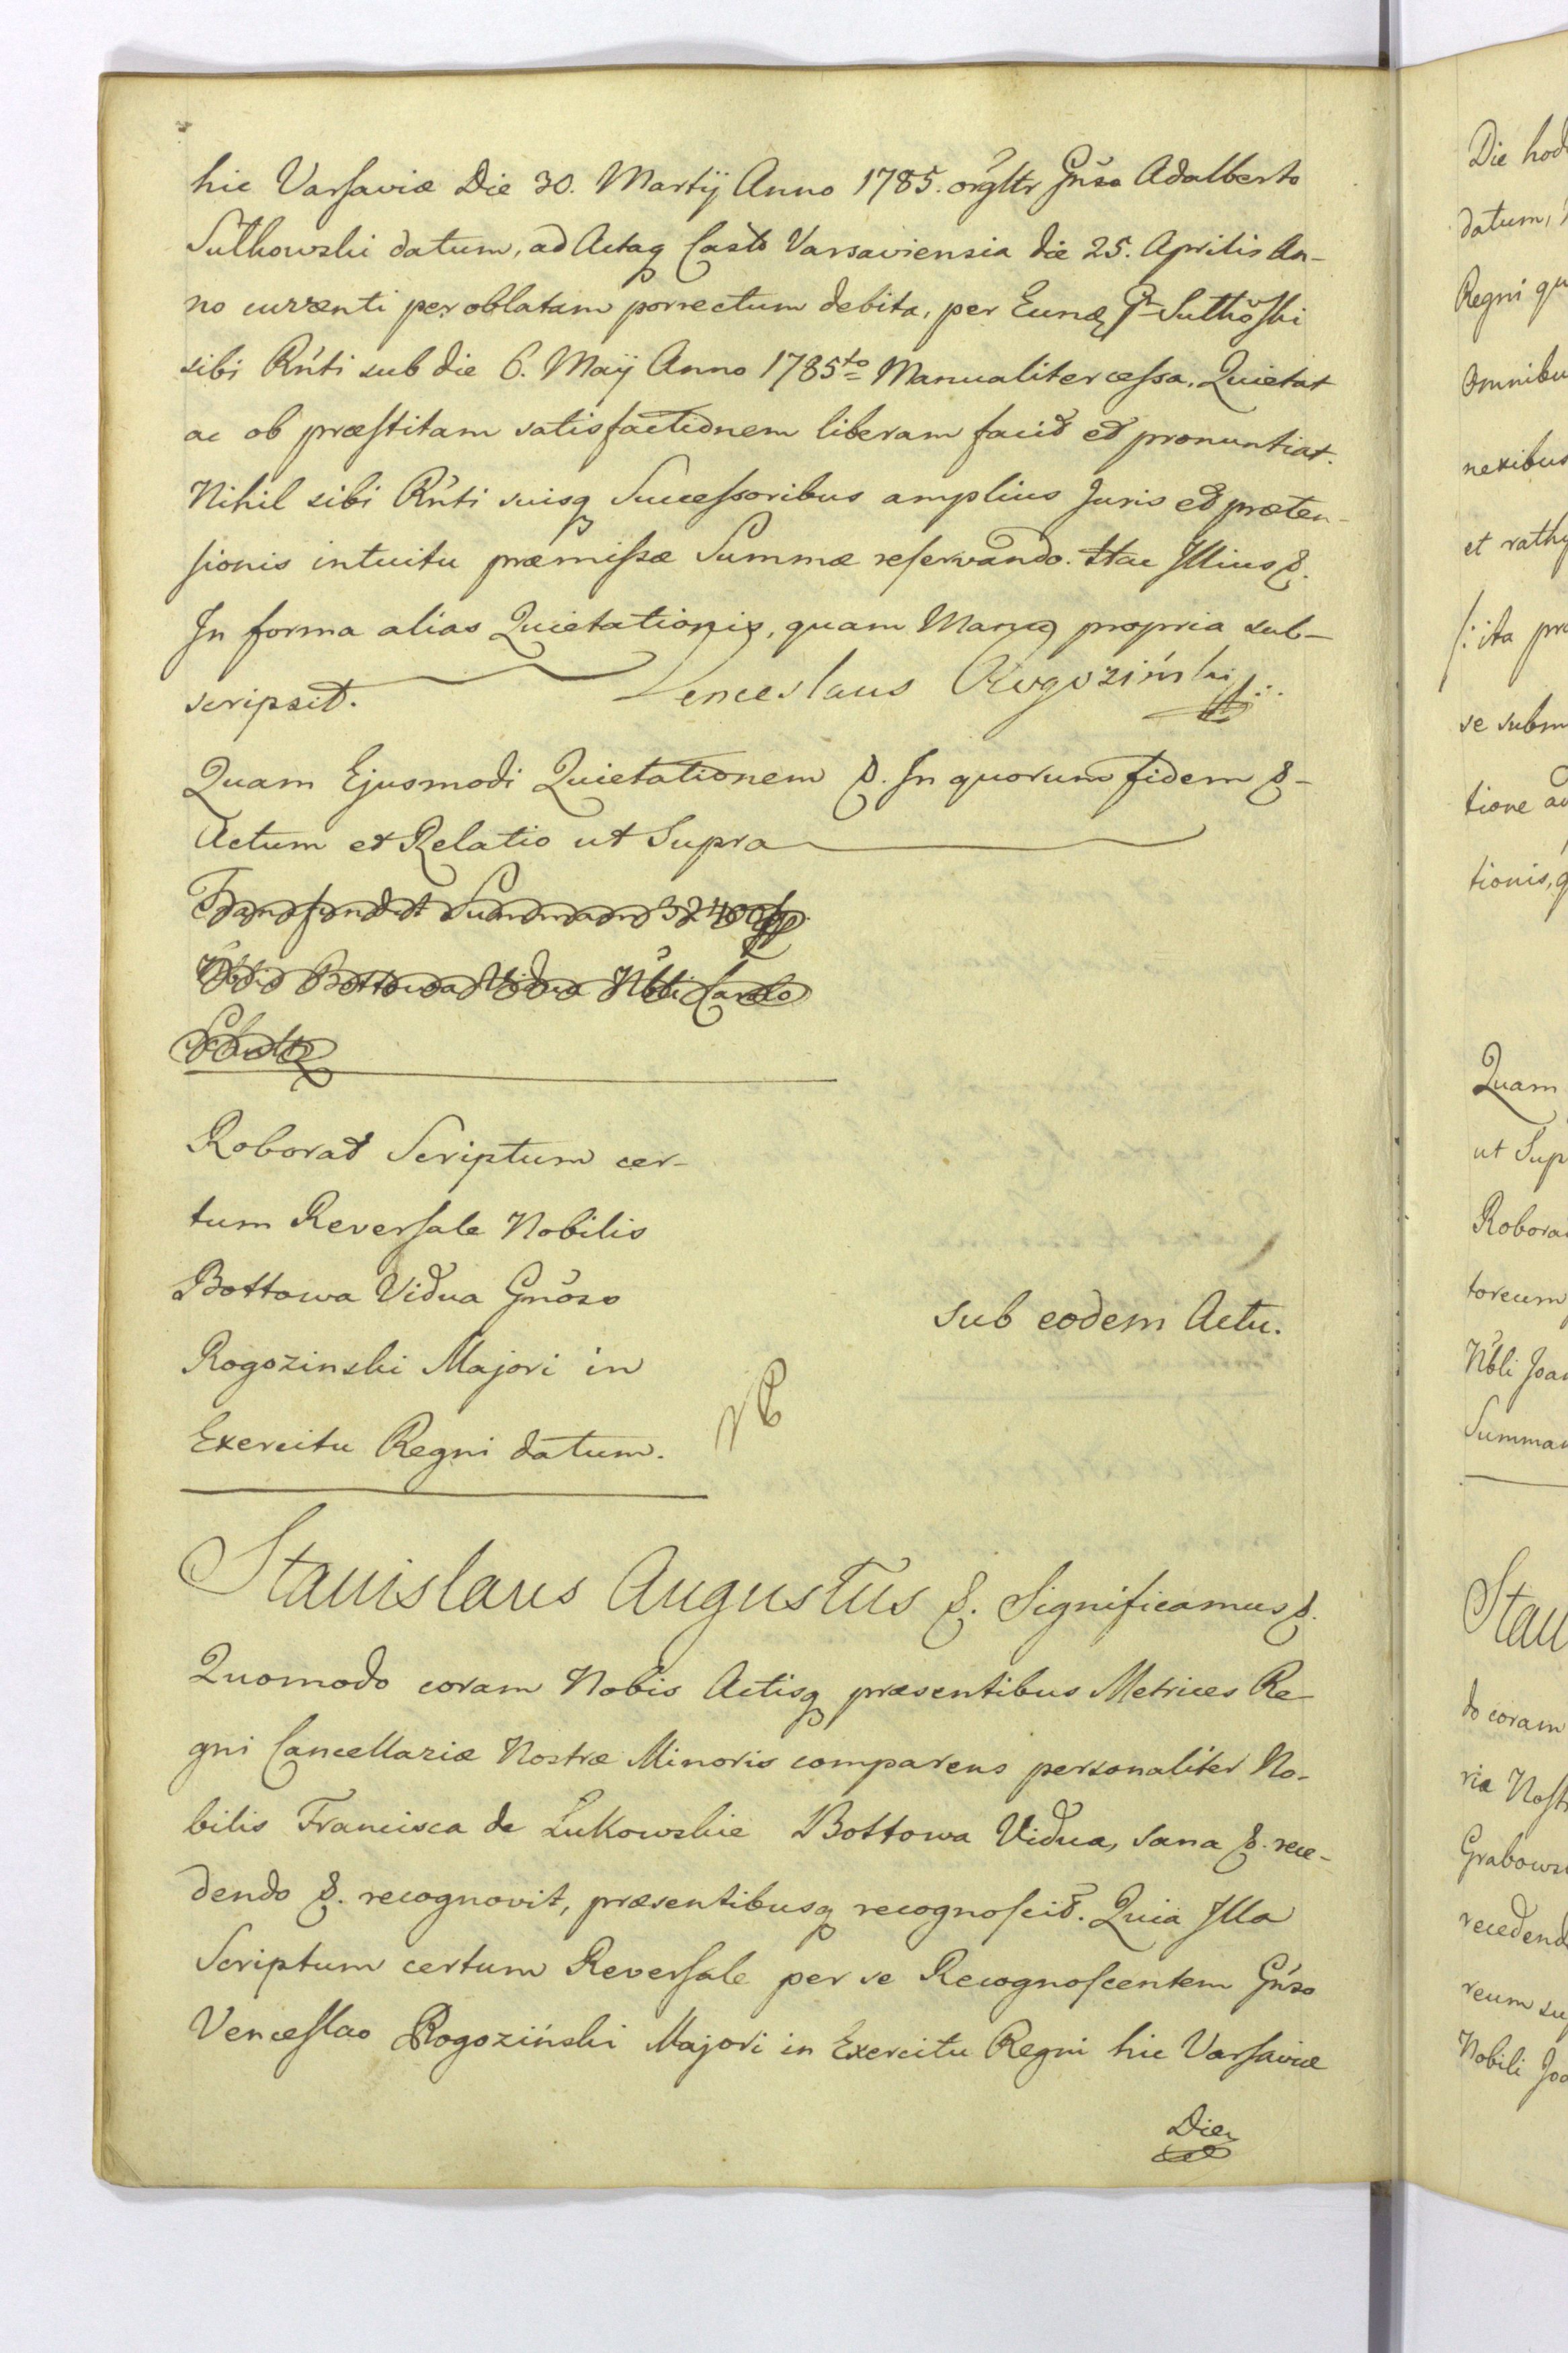 hic Varsaviæ Die 30. Martij Anno 1785. orgltr Gñso Adalberto
Sutkowski datum, ad Actaq Castr Varsaviensia die 25. Aprilis An-
no currenti per oblatam porrectum debita, per Eundem Sutkowski
sibi Rñti sub die 6. Maij Anno 1785to Manualiter cessa. Quietat
ac ob præstitam satisfactionem liberam facit et pronuntiat.
Nihil sibi Rñti suisq Successoribus amplius Juris et præten-
sionis intuitu præmissæ Summæ reservando. Hac Illius &.
In forma alias Quietationis, quam Manu propria sub-
scripsit. Venceslaus Rogoziński
Quam Ejusmodi Quietationem &. In quorum fidem &-
Actum et Relatio ut Supra
Transfundit Summam 32400
Nblis Bottowa Vidua Nbli Carolo
Schultz
Roborat Scriptum cer-
tum Reversale Nobilis
Bottowa Vidua Gnoso
Rogozinski Majori in
Exercitu Regni datum.
sub eodem Actu.
Stanislaus Augustus &. Significamus &.
Quomodo coram Nobis Actisq præsentibus Metrices Re-
gni Cancellariæ Nostræ Minoris comparens personaliter No-
bilis Francisca de Łukowskie Bottowa Vidua, sana &. rece-
dendo &. recognovit, præsentibusq recognoscit. Quia Illa
Scriptum certum Reversale per se Recognoscentem Gñso
Venceslao Rogoziński Majori in Exercitu Regni hic Varsaviæ
Die
Die hod
datum,
Regni qu
Omnibu
nexibus
et rath
/: ita pr
se subm
tione
tionis,
Quam
ut Sup
Robora
toreum
Nbli Joan
Summa
Stau
do coram
ria Nost
Grabows
recedend
reum su
Nobili Joa